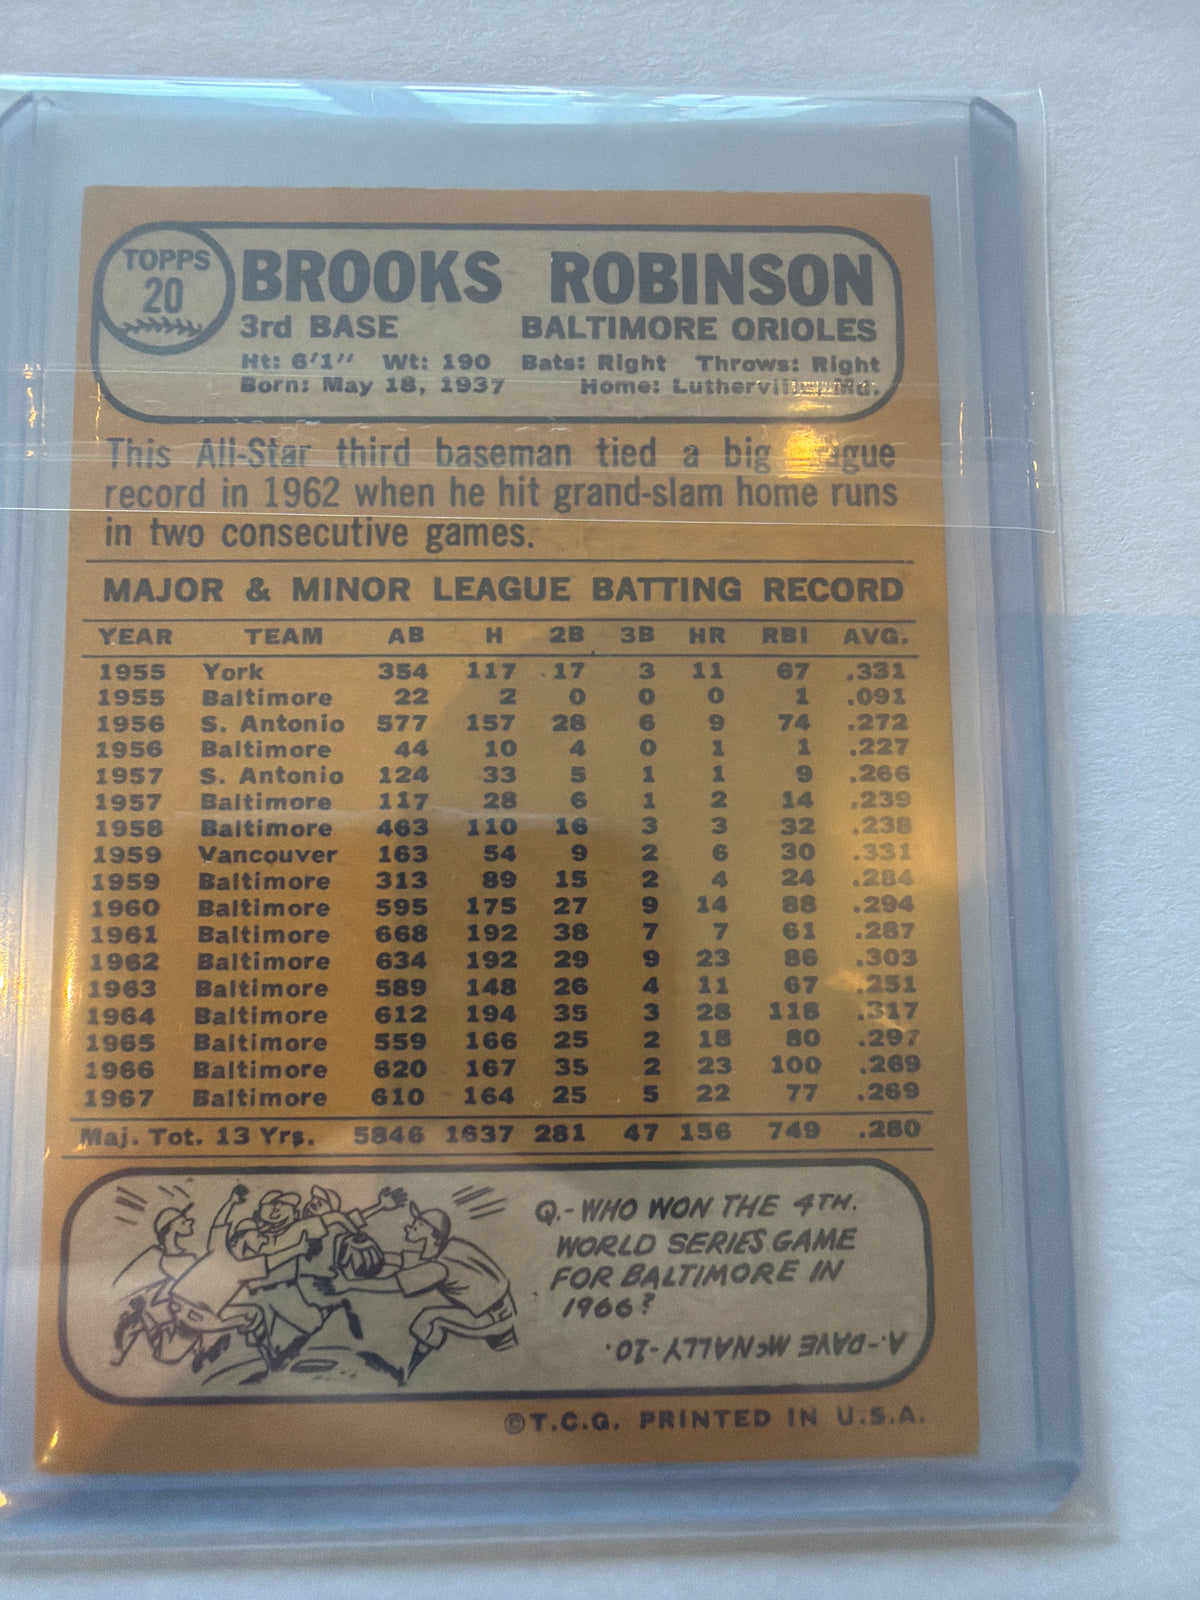 TOPPS
20
BROOKS ROBINSON
3rd BASE BALTIMORE ORIOLES
Ht: 6'1" Wt: 190 Bats: Right Throws: Right
Born: May 18, 1937 Home: Md.
This All-Star third baseman tied a big
record in 1962 when he hit grand-slam home runs
in two consecutive games.
MAJOR & MINOR LEAGUE BATTING RECORD
YEAR TEAM AB H 2B 3B HR RBI AVG.
1955 York 354 117 17 3 11 67 .331
1955 Baltimore 22 2 0 0 0 1 .091
1956 S. Antonio 577 157 28 6 9 74 .272
1956 Baltimore 44 10 4 0 1 1 .227
1957 S. Antonio 124 33 5 1 1 9 .266
1957 Baltimore 117 28 6 1 2 14 .239
1958 Baltimore 463 110 16 3 3 32 .238
1959 Vancouver 163 54 9 2 6 30 .331
1959 Baltimore 313 89 15 2 4 24 .284
1960 Baltimore 595 175 27 9 14 88 .294
1961 Baltimore 668 192 38 7 7 61 .287
1962 Baltimore 634 192 29 9 23 86 .303
1963 Baltimore 589 148 26 4 11 67 .251
1964 Baltimore 612 194 35 3 28 118 .317
1965 Baltimore 559 166 25 2 18 80 .297
1966 Baltimore 620 167 35 2 23 100 .269
1967 Baltimore 610 164 25 5 22 77 .269
Maj. Tot. 13 Yrs. 5846 1637 281 47 156 749 .280
Q.- WHO WON THE 4TH.
WORLD SERIES GAME
FOR BALTIMORE IN
1966?
A.- DAVE McNALLY-10.
©T.C.G. PRINTED IN U.S.A.